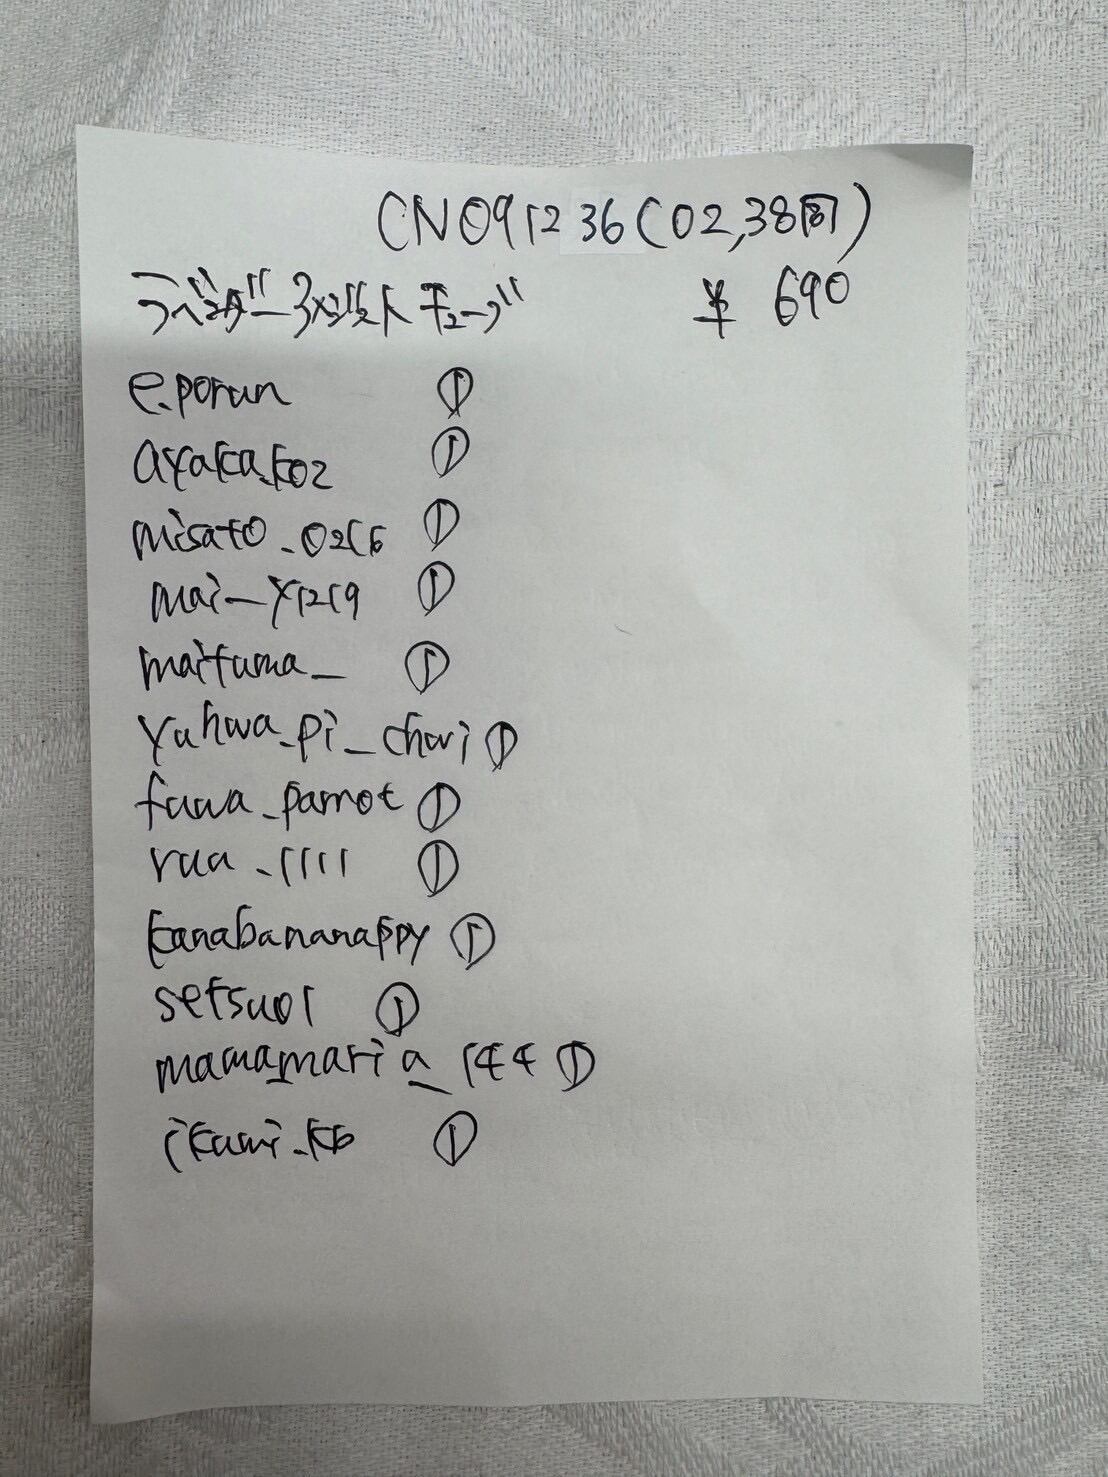 CN091236(02,38同)
ラベンダーアメジスト チューブ ¥ 690
e.porun ①
ayaka.k02 ①
misato_0216 ①
mai_y1219 ①
maifuma_ ①
yuhwa_pi_chori ①
fuwa_parrot ①
ruu_1111 ①
kanabananappy ①
setsu01 ①
mamamaria_144 ①
ikumi.kb ①